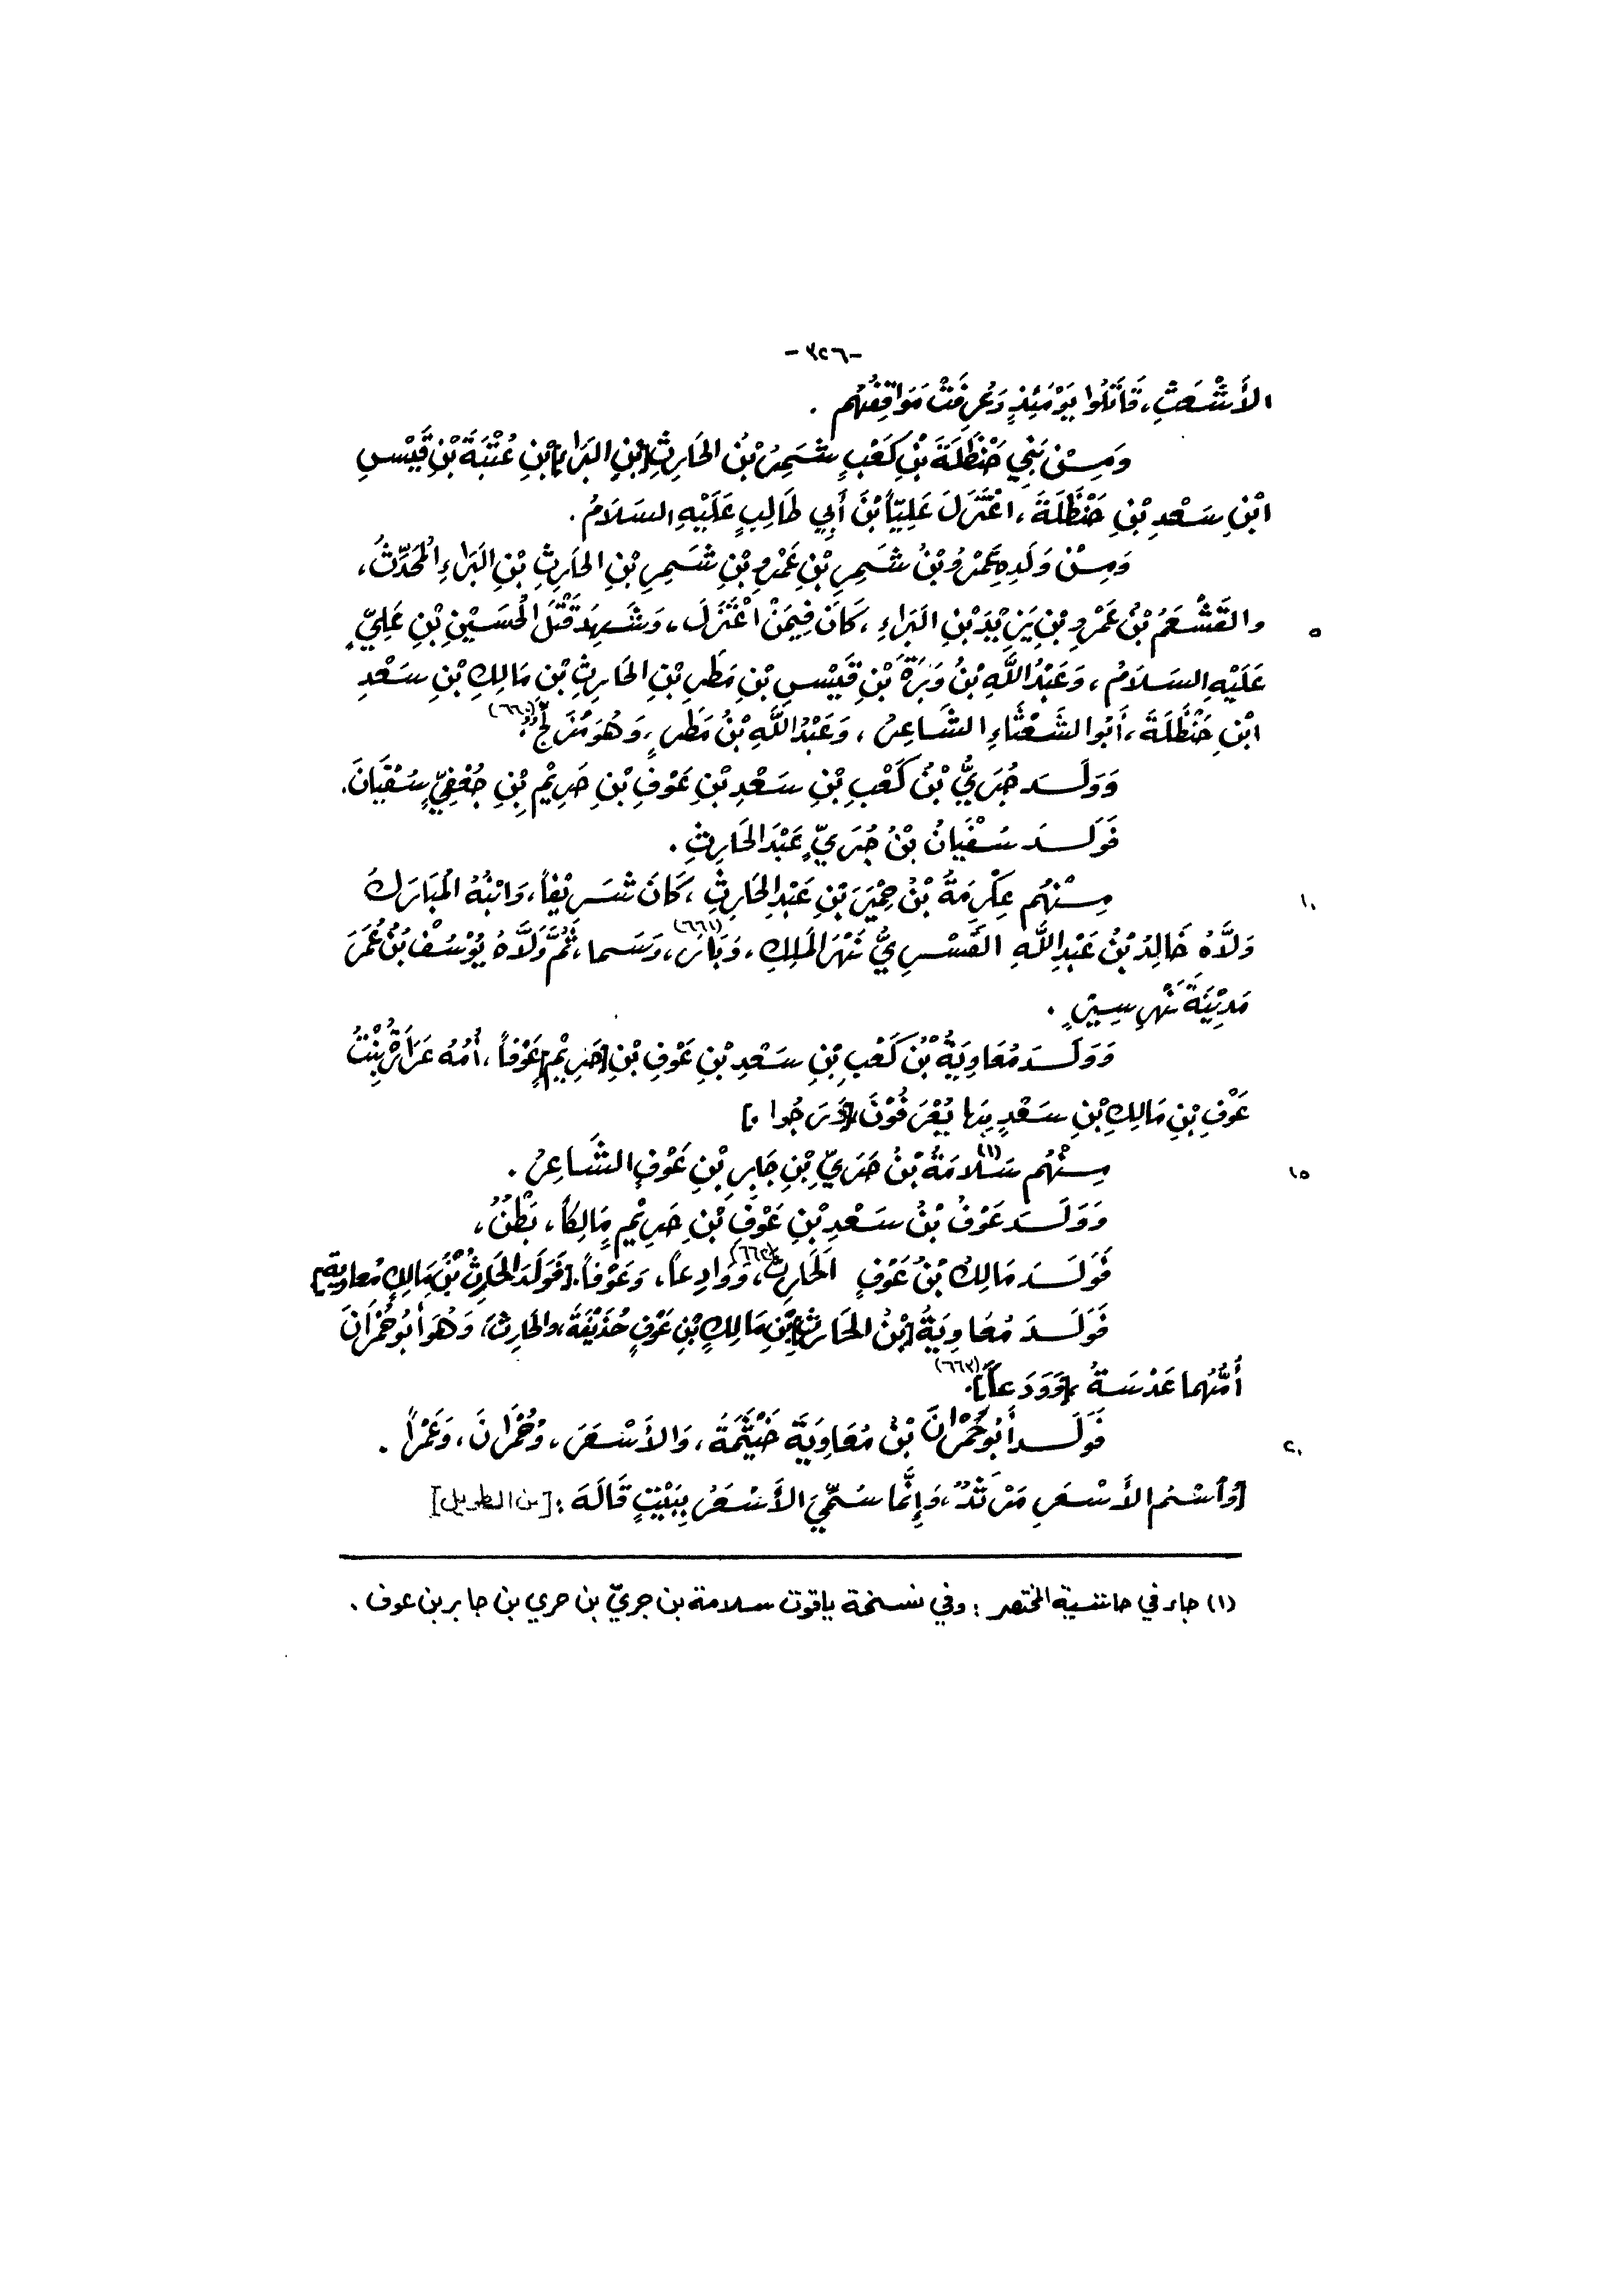 -٣٢٦-
الأَشْعَثِ، قَاتَلُوا يَوْمَئِذٍ وَعُرِفَتْ مَوَاقِفُهُم .
وَمِنْ بَنِي حَنْظَلَةَ بْنِ كَعْبٍ شَمِرُ بْنُ الحَارِثِ [بْنِ البَرَاءِ] بْنِ عُتْبَةَ بْنِ قَيْسِ
ابْنِ سَعْدِ بْنِ حَنْظَلَةَ، اعْتَزَلَ عَلِيّاً بْنَ أَبِي طَالِبٍ عَلَيْهِ السَلَامُ .
وَمِنْ وَلَدِهِ عَمْرُو بْنُ شَمِرِ بْنِ عَمْرِو بْنِ شَمِرِ بْنِ الحَارِثِ بْنِ البَرَاءِ المُحَدِّثُ،
٥
والقَشْعَمُ بْنُ عَمْرِو بْنِ يَزِيْدَ بْنِ البَرَاءِ، كَانَ فِيمَنْ اعْتَزَلَ، وَشَهِدَ قَتْلَ الحُسَيْنِ بْنِ عَلِيٍّ
عَلَيْهِ السَلَامُ، وَعَبْدُ اللَّهِ بْنُ وَبَرَةَ بْنِ قَيْسِ بْنِ مَطَرِ بْنِ الحَارِثِ بْنِ مَالِكِ بْنِ سَعْدِ
ابْنِ حَنْظَلَةَ، أَبُو الشَعْثَاءِ الشَاعِرُ، وَعَبْدُ اللَّهِ بْنُ مَطَرٍ، وَهُوَ مُزَلِّجٌ (٦٦٠).
وَوَلَدَ جُرَيُّ بْنُ كَعْبِ بْنِ سَعْدِ بْنِ عَوْفِ بْنِ حَرِيْمِ بْنِ جُعْفِيٍّ سُفْيَانَ.
فَوَلَدَ سُفْيَانُ بْنُ جُرَيٍّ عَبْدَ الحَارِثِ .
١٠
مِنْهُم عِكْرِمَةُ بْنُ حِمْيَرَ بْنِ عَبْدِ الحَارِثِ، كَانَ شَرِيْفاً، وَابْنُهُ المُبَارَكُ
وَلَّاهُ خَالِدُ بْنُ عَبْدِ اللَّهِ القَسْرِيُّ نَهْرَ المَلِكِ، وَبَارَ (٦٦١)، وَسَما، ثُمَّ وَلَّاهُ يُوْسُفُ بْنُ عُمَرَ
مَدِيْنَةَ نَهْرِ سِيْنٍ .
وَوَلَدَ مُعَاوِيَةُ بْنُ كَعْبِ بْنِ سَعْدِ بْنِ عَوْفِ بْنِ [حَرِيْمٍ] عَوْفاً، أُمُهُ عَرَارَةُ بِنْتُ
عَوْفِ بْنِ مَالِكِ بْنِ سَعْدٍ بِهَا يُعْرَفُوْنَ [دَرَجُوا .]
١٥
مِنْهُم سَلَامَةُ (١) بْنُ حَرَيِّ بْنِ جَابِرِ بْنِ عَوْفٍ الشَاعِرُ .
وَوَلَدَ عَوْفُ بْنُ سَعْدِ بْنِ عَوْفِ بْنِ حَرِيْمٍ مَالِكاً، بَطْنٌ،
فَوَلَدَ مَالِكُ بْنُ عَوْفٍ الحَارِثَ (٦٦٢)، وَوَادِعاً، وَعَوْفاً. [فَوَلَدَ الحَارِثُ بْنُ مَالِكٍ مُعاوية]
فَوَلَدَ مُعَاوِيَةُ [بْنُ الحَارِثِ] بْنِ مَالِكِ بْنِ عَوْفٍ حُذَيْفَةَ، والحَارِثَ، وَهُوَ أَبُو حُمْرَانَ
أُمُّهُما عَدْسَةُ، [وَوَدَعاً (٦٦٣)].
٢٠
فَوَلَدَ أَبُو حُمْرَانَ بْنُ مُعَاوِيَةَ خَيْثَمَةَ، وَالأَسْعَرَ، وَحُمْرَانَ، وَعَمْراً .
[وَاسْمُ الأَسْعَرِ مَرْثَدٌ، وَإِنَّما سُمِّيَ الأَسْعَرُ بِبَيْتٍ قَالَهَ : [من الطويل]
(١) جاء في حاشية المختصر : وفي نسخة ياقوت سلامة بن جريّ بن حري بن جابر بن عوف .